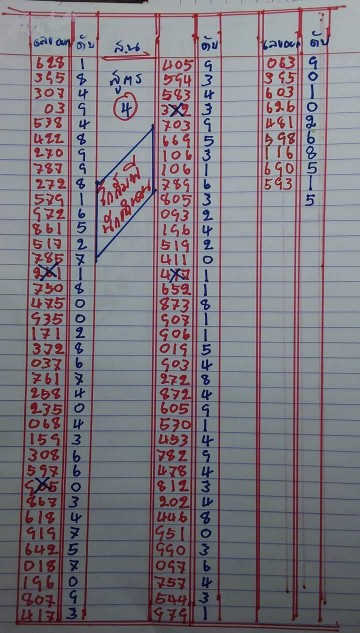 เลขออก ดับ ลบน เลขออก ดับ
628 1 405 9 063 9
395 8 สูตร 594 3 395 0
307 4 4 583 4 603 1
03 9 3 626 0
538 4 703 9 481 2
422 8 669 5 598 6
270 9 106 3 116 8
787 9 106 1 690 5
272 8 789 6 593 1
579 1 805 3 5
972 6 093 2
861 5 196 4
517 2 519 2
785 7 411 0
1 1
730 8 652 1
475 0 873 8
935 0 907 1
171 2 906 1
372 8 019 5
037 6 903 4
761 7 272 8
258 4 872 4
235 0 605 9
068 4 530 1
159 3 453 4
308 6 782 9
597 6 478 4
0 812 3
867 3 202 4
618 4 446 8
919 7 951 0
642 5 990 3
018 7 097 6
196 0 757 4
807 9 544 3
417 3 979 1